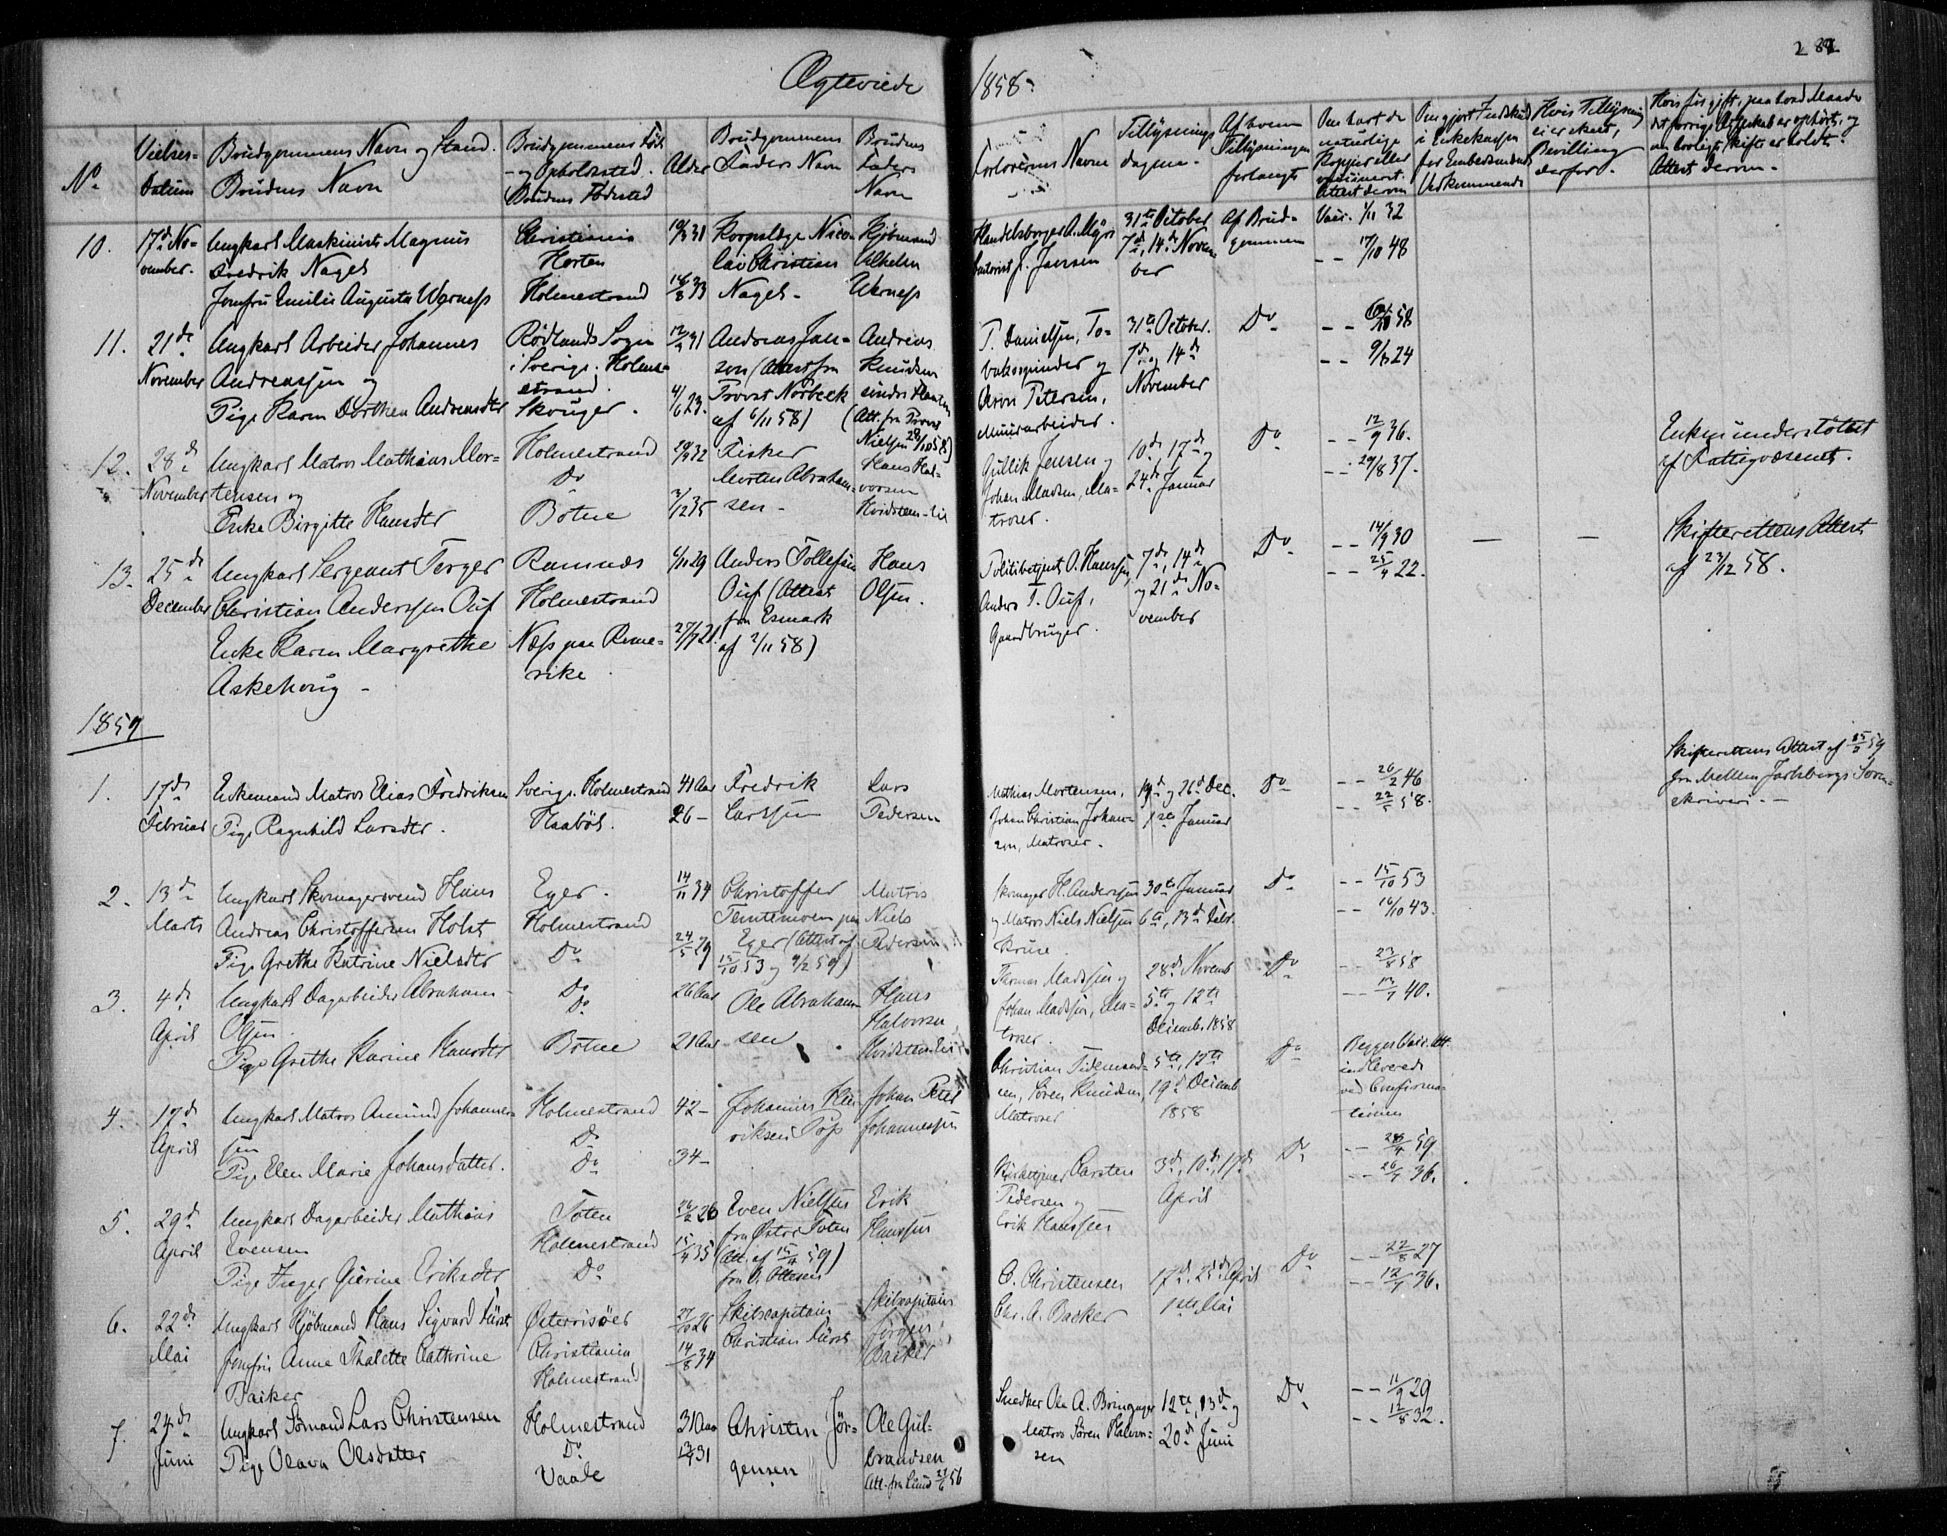 Ægteviede
1858.
No
Vielses-
Datum
Brudgommens Navn og Stand.
Brudens Navn
Brudgommens Føde
- og Opholdssted.
Brudens Fødested
Alder
Brudgommens
Faders Navn
Brudens
Faders
Navn
Forlovernes Navne
Tillysnings
dagene
Af hvem
Tillysningen
forlangt
Om havt de
naturlige
Kopper eller
vaccineret.
Attest derom
Om gjort Indskud
i Enkekassen
for Embedsmænd
Vedkommende
Hvis Tillysning
ei er skeet,
Bevilling
derfor.
Hvis før gift, paa hvad Maade
det forrige Ægteskab er ophørt, og
om lovligt Skifte er holdt.
Attest derom.
10.
17de No-
vember.
Ungkarl Maskinist Magnus
Fredrik Nagel
Jomfru Emilie Augusta Werness
Christiania
Horten
Holmestrand
19/3 31
16/8 33
Korpslæge Nico-
lai Christian
Nagel
Kjøbmand
Vilhelm
Werness
Handelsborger A. Myre
J. Jansen
31te October
7de, 14de Novem
ber
Af Brud-
gommen
Vacc. 1/11 32
- - 17/10 48
11.
21de
November
Ungkarl Arbeider Johannes
Andreassen og
Pige Karen Dorthea Andreasdtr
Rødlands Sogn
i Sverige. Holme-
strand.
Skouger.
12/2 31
4/6 23.
Andreas Jan-
son (Attest fra
Provst Norbeck
af 6/11 58)
Andreas
Knudsen
søndre
(Att. fra Provst
Nielsen 28/10 58)
T. Danielsen, To-
baksspinder og
Aron Petersen,
Muurarbeider.
31te October.
7de og 14de
November
Do
- - 58
- - 9/8 24
12.
28de
November
Ungkarl Matros Mathias Mor-
tensen og
Enke Birgitte Hansdtr
Holmestrand
Do
Botne
29/9 32
3/12 35
Fisker
Morten Abraham-
sen -
Hans Hal-
vorsen
Hvidsten-Eie
Gullik Jensen og
Johan Madsen, Ma-
troser.
10de, 17de og
24de Januar
Do
- - 12/9 36.
- - 29/8 37.
Enken understøttet
af Fattigvæsenet.
13.
25de
December
Ungkarl Sergeant Terger
Christian Anderssen Ouf
Enke Karen Margrethe
Askehoug -
Ramnæs
Holmestrand
Næss paa Rome-
rike
6/11 29
27/7 21.
Anders Tollefsen
Ouf (Attest
fra Esmark
af 2/11 58)
Hans
Olsen.
Politibetjent O. Hanssen,
Anders T. Ouf,
Gaardbruger.
7de, 14de
og 21de No-
vember
Do
- - 14/9 30
- - 25/4 22.
Skifterettens Attest
af 23/12 58.
1859
1.
17de
Februar
Enkemand Matros Elias Fredriksen
Pige Ragnhild Larsdtr.
Sverige. Holmestrand
Haabøl.
41 Aar
26 -
Fredrik
Carlsen
Lars
Pedersen
Mathias Mortensen,
Johan Christian Johan-
sen, Matroser.
19de og 26de Dec.
1ste Januar
Do
- - 26/2 46
- - 22/5 58.
Skifterettens Attest af 59
fra Mellem Jarlsbergs Soren-
skriveri. -
2.
13de
Marts
Ungkarl Skomagersvend Hans
Andreas Christoffersen Holst
Pige Grethe Katrine Nielsdtr
Eger.
Holmestrand
Do
14/11 34
24/5 29
Christoffer
Temtemoen paa
Eger (Attest af
15/10 53 og 9/2 59)
Matros
Niels
Pedersen
Skomager H. Anderssen
og Matros Niels Nielsen
Kruse.
30te Januar
6te, 13de Febr.
Do
- - 15/10 53
- - 16/10 43.
3.
4de
April
Ungkarl Dagarbeider Abraham
Olsen
Pige Grethe Karine Hansdtr
Do
Do
Botne
26 Aar
21 Aar
Ole Abraham-
sen
Hans
Halvorsen
Hvidsten-Eie
Thomas Madssen og
Johan Madssen, Ma-
troser.
28de Novemb
5te og 12te
Decemb. 1858
Do
- - 23/8 58
- - 13/7 40.
4.
17de
April
Ungkarl Matros Amund Johannes-
sen
Pige Elen Marie Johansdatter.
Holmestrand
Do
Do
42 -
34 -
Johannes Hen-
riksen
Johan Peter
Johannessen
Christian Tidemand-
sen, Søren Knudsen,
Matroser
5te, 12te
19de Decemb
1858
Do
Begges Vacc. Att.
indleverede
ved Confirma-
tionen
5.
29de
April
Ungkarl Dagarbeider Mathias
Evensen
Pige Inger Gierine Eriksdtr
Toten
Holmestrand
Do
26/2 26
15/4 35
Even Nielsen
fra Østre Toten
(Att. af 15/4 59)
fra Ottesen
Erik
Hanssen
Carsten
Pedersen og
Erik Hanssen
3de, 10de, 17de
April
Do
- - 59.
- - 26/4 36.
6.
22de
Mai
Ungkarl Kjøbmand Hans Sigvard Fürst
Jomfru Anne Thalette Cathrine
Backer
Østerrisøer
Christiania
Holmestrand
26
14/8 34
Skibscapitain
Christian Fürst
Skibscapitain
Jørgen
Backer
C. Christensen
Chr. A. Backer
17de, 25de April
1ste Mai
Do
- - 22/8 27
- - 12/7 36.
7.
24de
Juni
Ungkarl Sømand Lars Christensen
Pige Olava Olsdatter
Holmestrand
Do
Vaale
31 Aar
31
Christen Jør-
gensen
Ole Gul-
brandsen
Att. fra Lund 56
Snedker Ole A. Bringager
Matros Søren Halvor-
sen
12te, 13de og
20de Juni
Do
- - 11/9 29
- - 12/8 32.